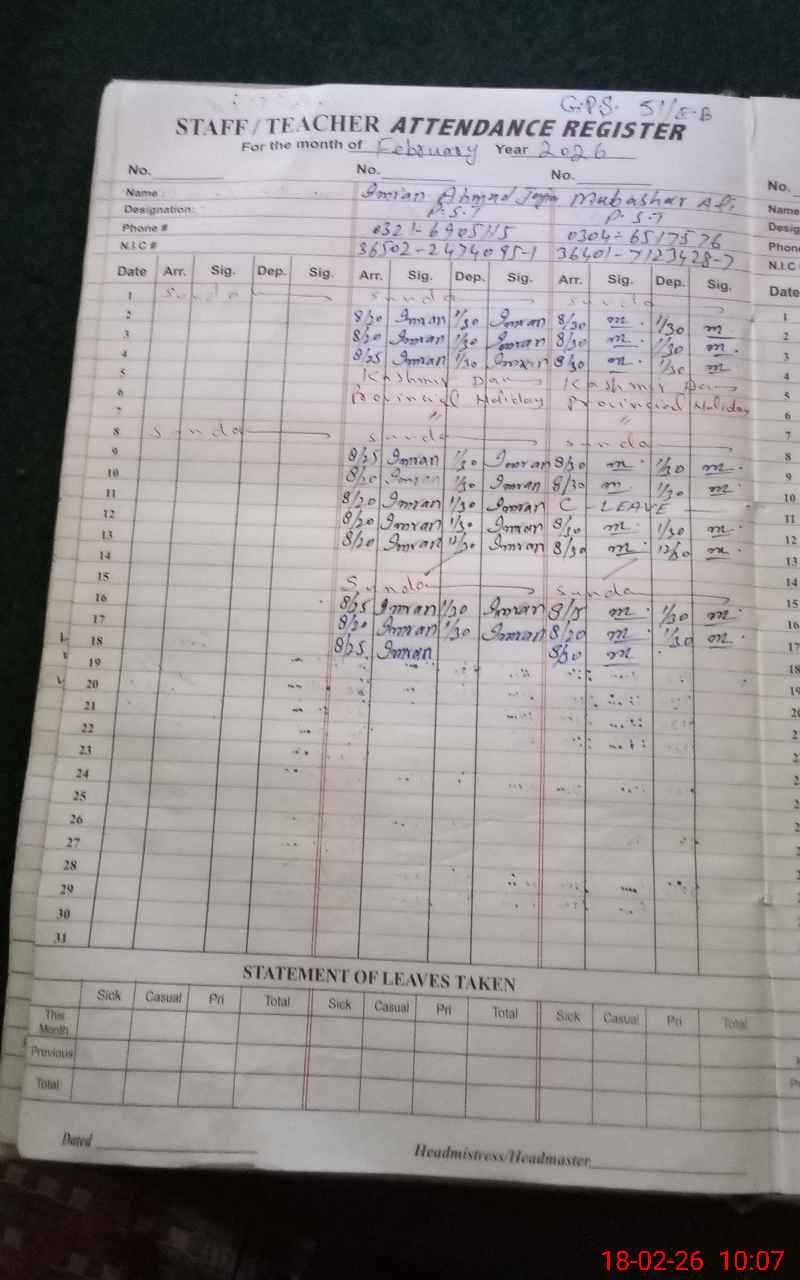 G.P.S. 51/5-B
STAFF/TEACHER ATTENDANCE REGISTER
For the month of February Year 2026
No. No. No. No.
Name : Imran Ahmad Mubashar Ali Name
Designation: P.S.T P.S.T Desig
Phone # 0304-6517576 Phon
N.I.C # 36502-2474095-1 36401-7123428-7 N.I.C
Date Arr. Sig. Dep. Sig. Arr. Sig. Dep. Sig. Arr. Sig. Dep. Sig. Date
1 Sunda Sunda Sunda 1
2 8/20 Imran 1/30 Imran 8/30 m 1/30 m 2
3 8/20 Imran 1/30 Imran 8/30 m 1/30 m 3
4 8/25 Imran 1/30 Imran 8/30 m 1/30 m 4
5 Kashmir Day Kashmir Day 5
6 Provincial Holiday Provincial Holiday 6
7 〃 〃 7
8 Sunda Sunda Sunda 8
9 8/25 Imran 1/30 Imran 8/30 m 1/30 m 9
10 8/20 Imran 1/30 Imran 8/30 m 1/30 m 10
11 8/20 Imran 1/30 Imran C LEAVE 11
12 8/20 Imran 1/30 Imran 8/30 m 1/30 m 12
13 8/20 Imran 12/30 Imran 8/30 m 12/30 m 13
14 14
15 Sunda Sunda 15
16 8/25 Imran 1/30 Imran 8/15 m 1/30 m 16
17 8/20 Imran 1/30 Imran 8/20 m 1/30 m 17
18 8/25 Imran 8/30 m 18
19 19
20
21
22
23
24
25
26
27
28
29
30
31
STATEMENT OF LEAVES TAKEN
Sick Casual Pri Total Sick Casual Pri Total Sick Casual Pri Total
This Month
Previous
Total
Dated Headmistress/Headmaster
18-02-26 10:07